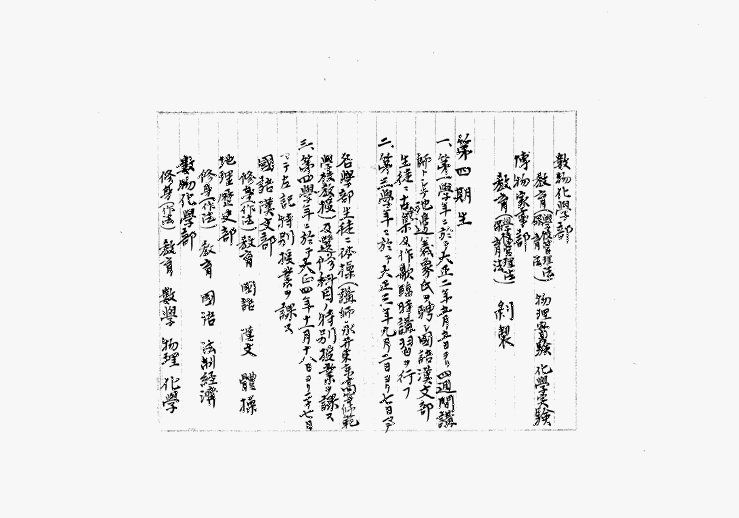 數物化學部
教育(學校管理法 保育法) 物理實驗 化學実験
博物家事部
教育(學校管理法 保育法) 剥製
第四期生
一、第一學年ニ於テ大正二年五月五日ヨリ四週間講
師トシテ池邊義象氏ヲ聘シ國語漢文部
生徒ニ古典及作歌臨時講習ヲ行フ
二、第三學年ニ於テ大正三年九月二日ヨリ七日マデ
各學部生徒ニ体操(講師永井東京高等師範
學校教授)及選修科目ノ特別授業ヲ課ス
三、第四學年ニ於テ大正四年十二月十八日ヨリ二十七日
マデ左記特別授業ヲ課ス
國語漢文部
修身(作法) 教育 國語 漢文 體操
地理歷史部
修身(作法) 教育 國語 法制經濟
數物化學部
修身(作法) 教育 數學 物理 化學